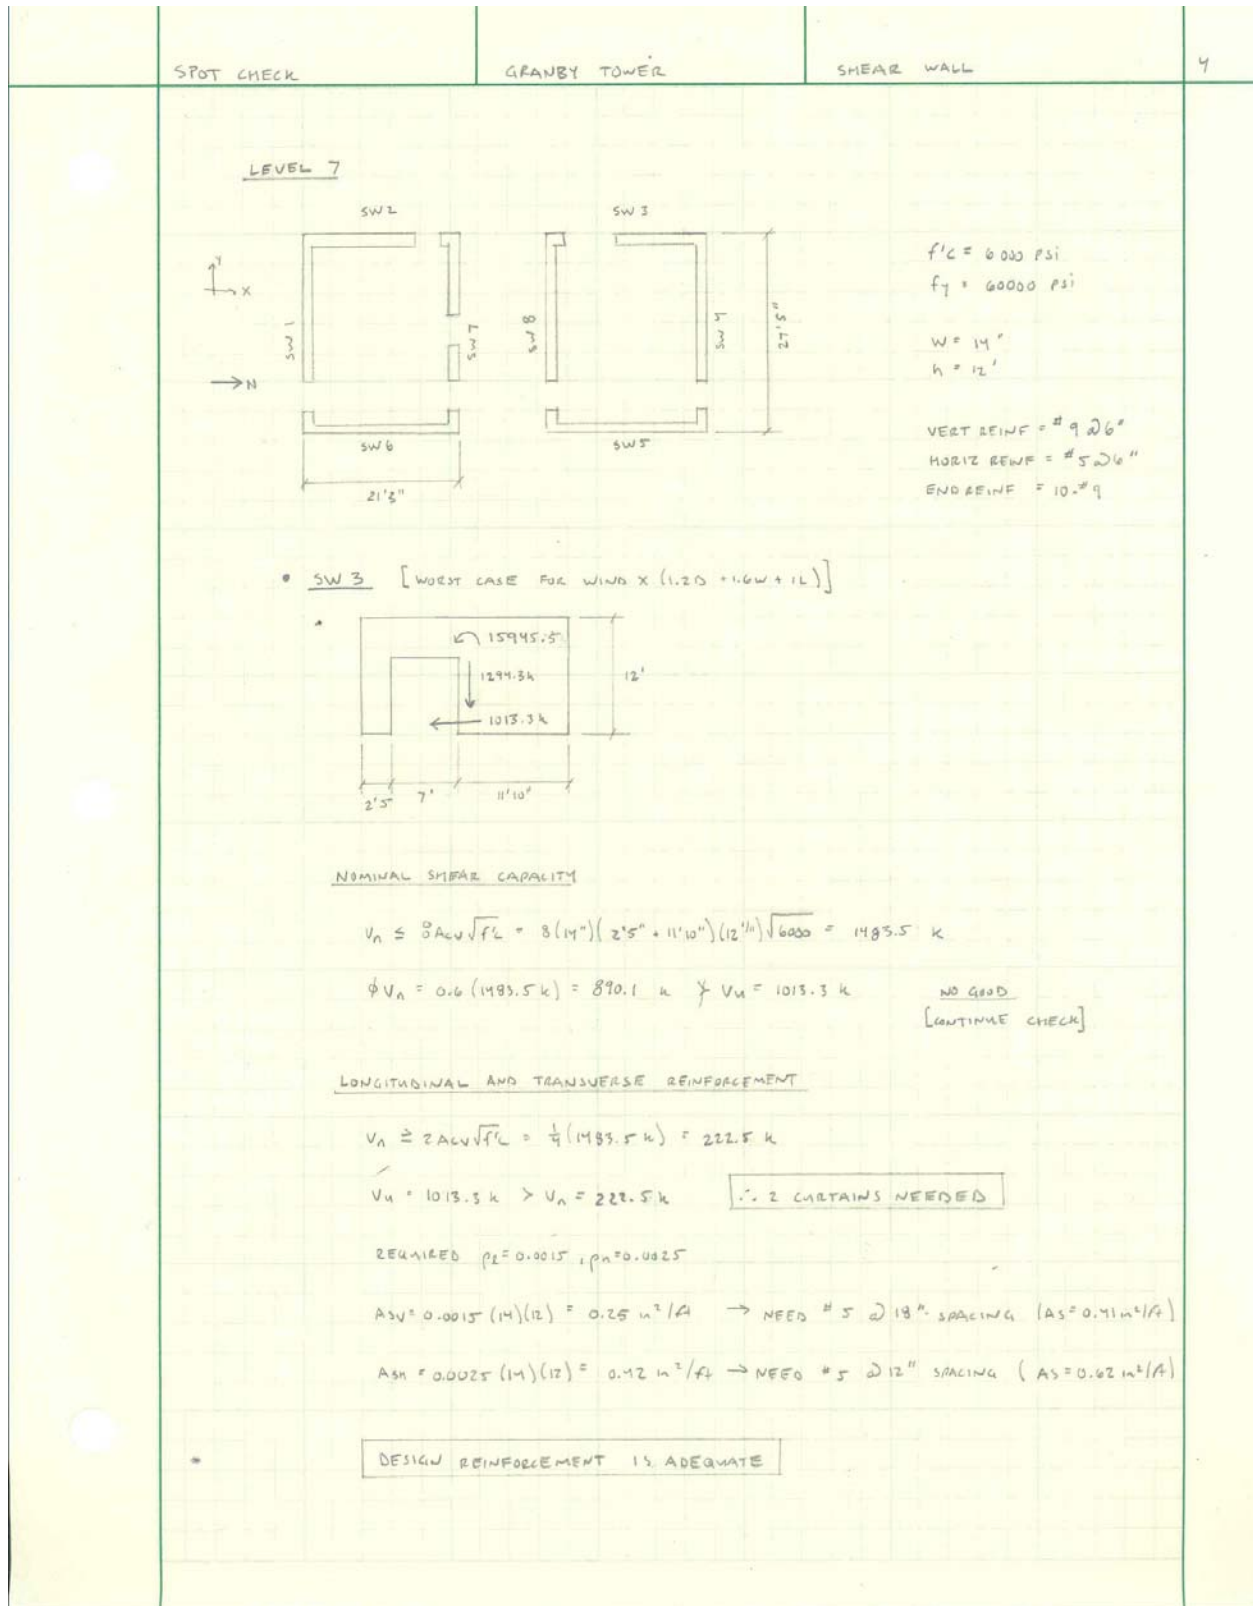 SPOT CHECK GRANBY TOWER SHEAR WALL 4
LEVEL 7
SW 2 SW 3
Y
X
SW 1 SW 7 SW 8 SW 4 27'5"
N
SW 6 SW 5
21'3"
f'c = 6000 psi
fy = 60000 psi
W = 14"
h = 12'
VERT REINF = #9 @ 6"
HORIZ REINF = #5 @ 6"
END REINF = 10-#9
• SW 3 [WORST CASE FOR WIND X (1.2D + 1.6W + 1L)]
15945.5
1294.3k 12'
1013.3k
2'5" 7' 11'10"
NOMINAL SHEAR CAPACITY
Vn ≤ 8Acv√f'c = 8(14")(2'5" + 11'10")(12"/1)√6000 = 1483.5 k
φVn = 0.6(1483.5k) = 890.1 k ≯ Vu = 1013.3 k NO GOOD
[CONTINUE CHECK]
LONGITUDINAL AND TRANSVERSE REINFORCEMENT
Vn ≥ 2Acv√f'c = 1/4(1483.5 k) = 222.5 k
Vu = 1013.3 k > Vn = 222.5 k ∴ 2 CURTAINS NEEDED
REQUIRED ρℓ = 0.0015, ρn = 0.0025
Asv = 0.0015 (14)(12) = 0.25 in²/ft → NEED #5 @ 18" SPACING (As = 0.41 in²/ft)
Ash = 0.0025 (14)(12) = 0.42 in²/ft → NEED #5 @ 12" SPACING (As = 0.62 in²/ft)
DESIGN REINFORCEMENT IS ADEQUATE